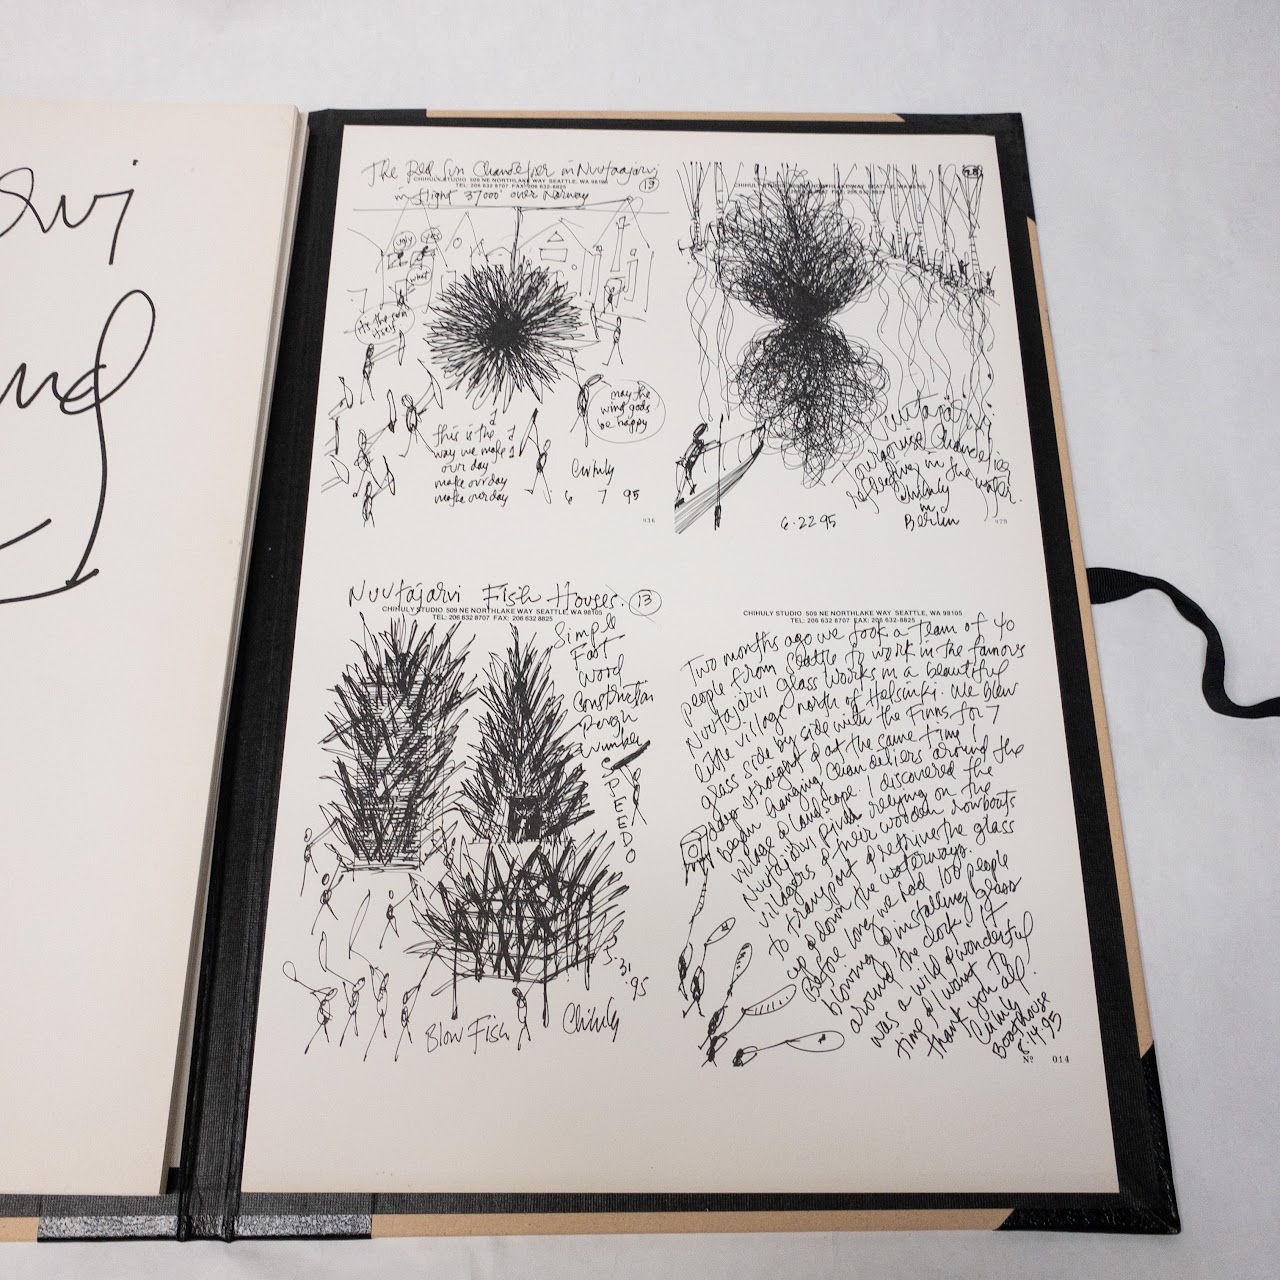 The Red Sun Chandelier in Nuutajarvi
CHIHULY STUDIO 509 NE NORTHLAKE WAY SEATTLE, WA 98105
TEL: 206 632 8707 FAX: 206 632-8825
13
in flight 37000' over Norway
ugly
yes
what
it's the sun
itself
may the
wind gods
be happy
this is the
way we make
our day
make our day
make our day
Chihuly
6 7 95
036
CHIHULY STUDIO 509 NE NORTHLAKE WAY SEATTLE, WA 98105
FAX: 206 632-8825
Nuutajarvi
Turquoise Chandelier
reflecting in the water
Chihuly
in
Berlin
6-22 95
079
Nuutajarvi Fish Houses.
13
CHIHULY STUDIO 509 NE NORTHLAKE WAY SEATTLE, WA 98105
TEL: 206 632 8707 FAX: 206 632-8825
Simple
Fast
Wood
Construction
Rough
SPEEDO
5.31.95
Blow Fish
Chihuly
CHIHULY STUDIO 509 NE NORTHLAKE WAY SEATTLE, WA 98105
TEL: 206 632 8707 FAX: 206 632-8825
Two months ago we took a team of 40
people from Seattle to work in the famous
Nuutajarvi glass works in a beautiful
little village north of Helsinki. We blew
glass side by side with the Finns for 7
days straight & at the same time I
began hanging Chandeliers around the
village & landscape. I discovered the
Nuutajarvi River relying on the
villagers & their wooden rowboats
to transport & retrive the glass
up & down the waterways.
Before long we had 100 people
blowing & installing glass
around the clock. It
was a wild & wonderful
time & I want to
thank you all.
Chihuly
Boathouse
8.14.95
Nº 014